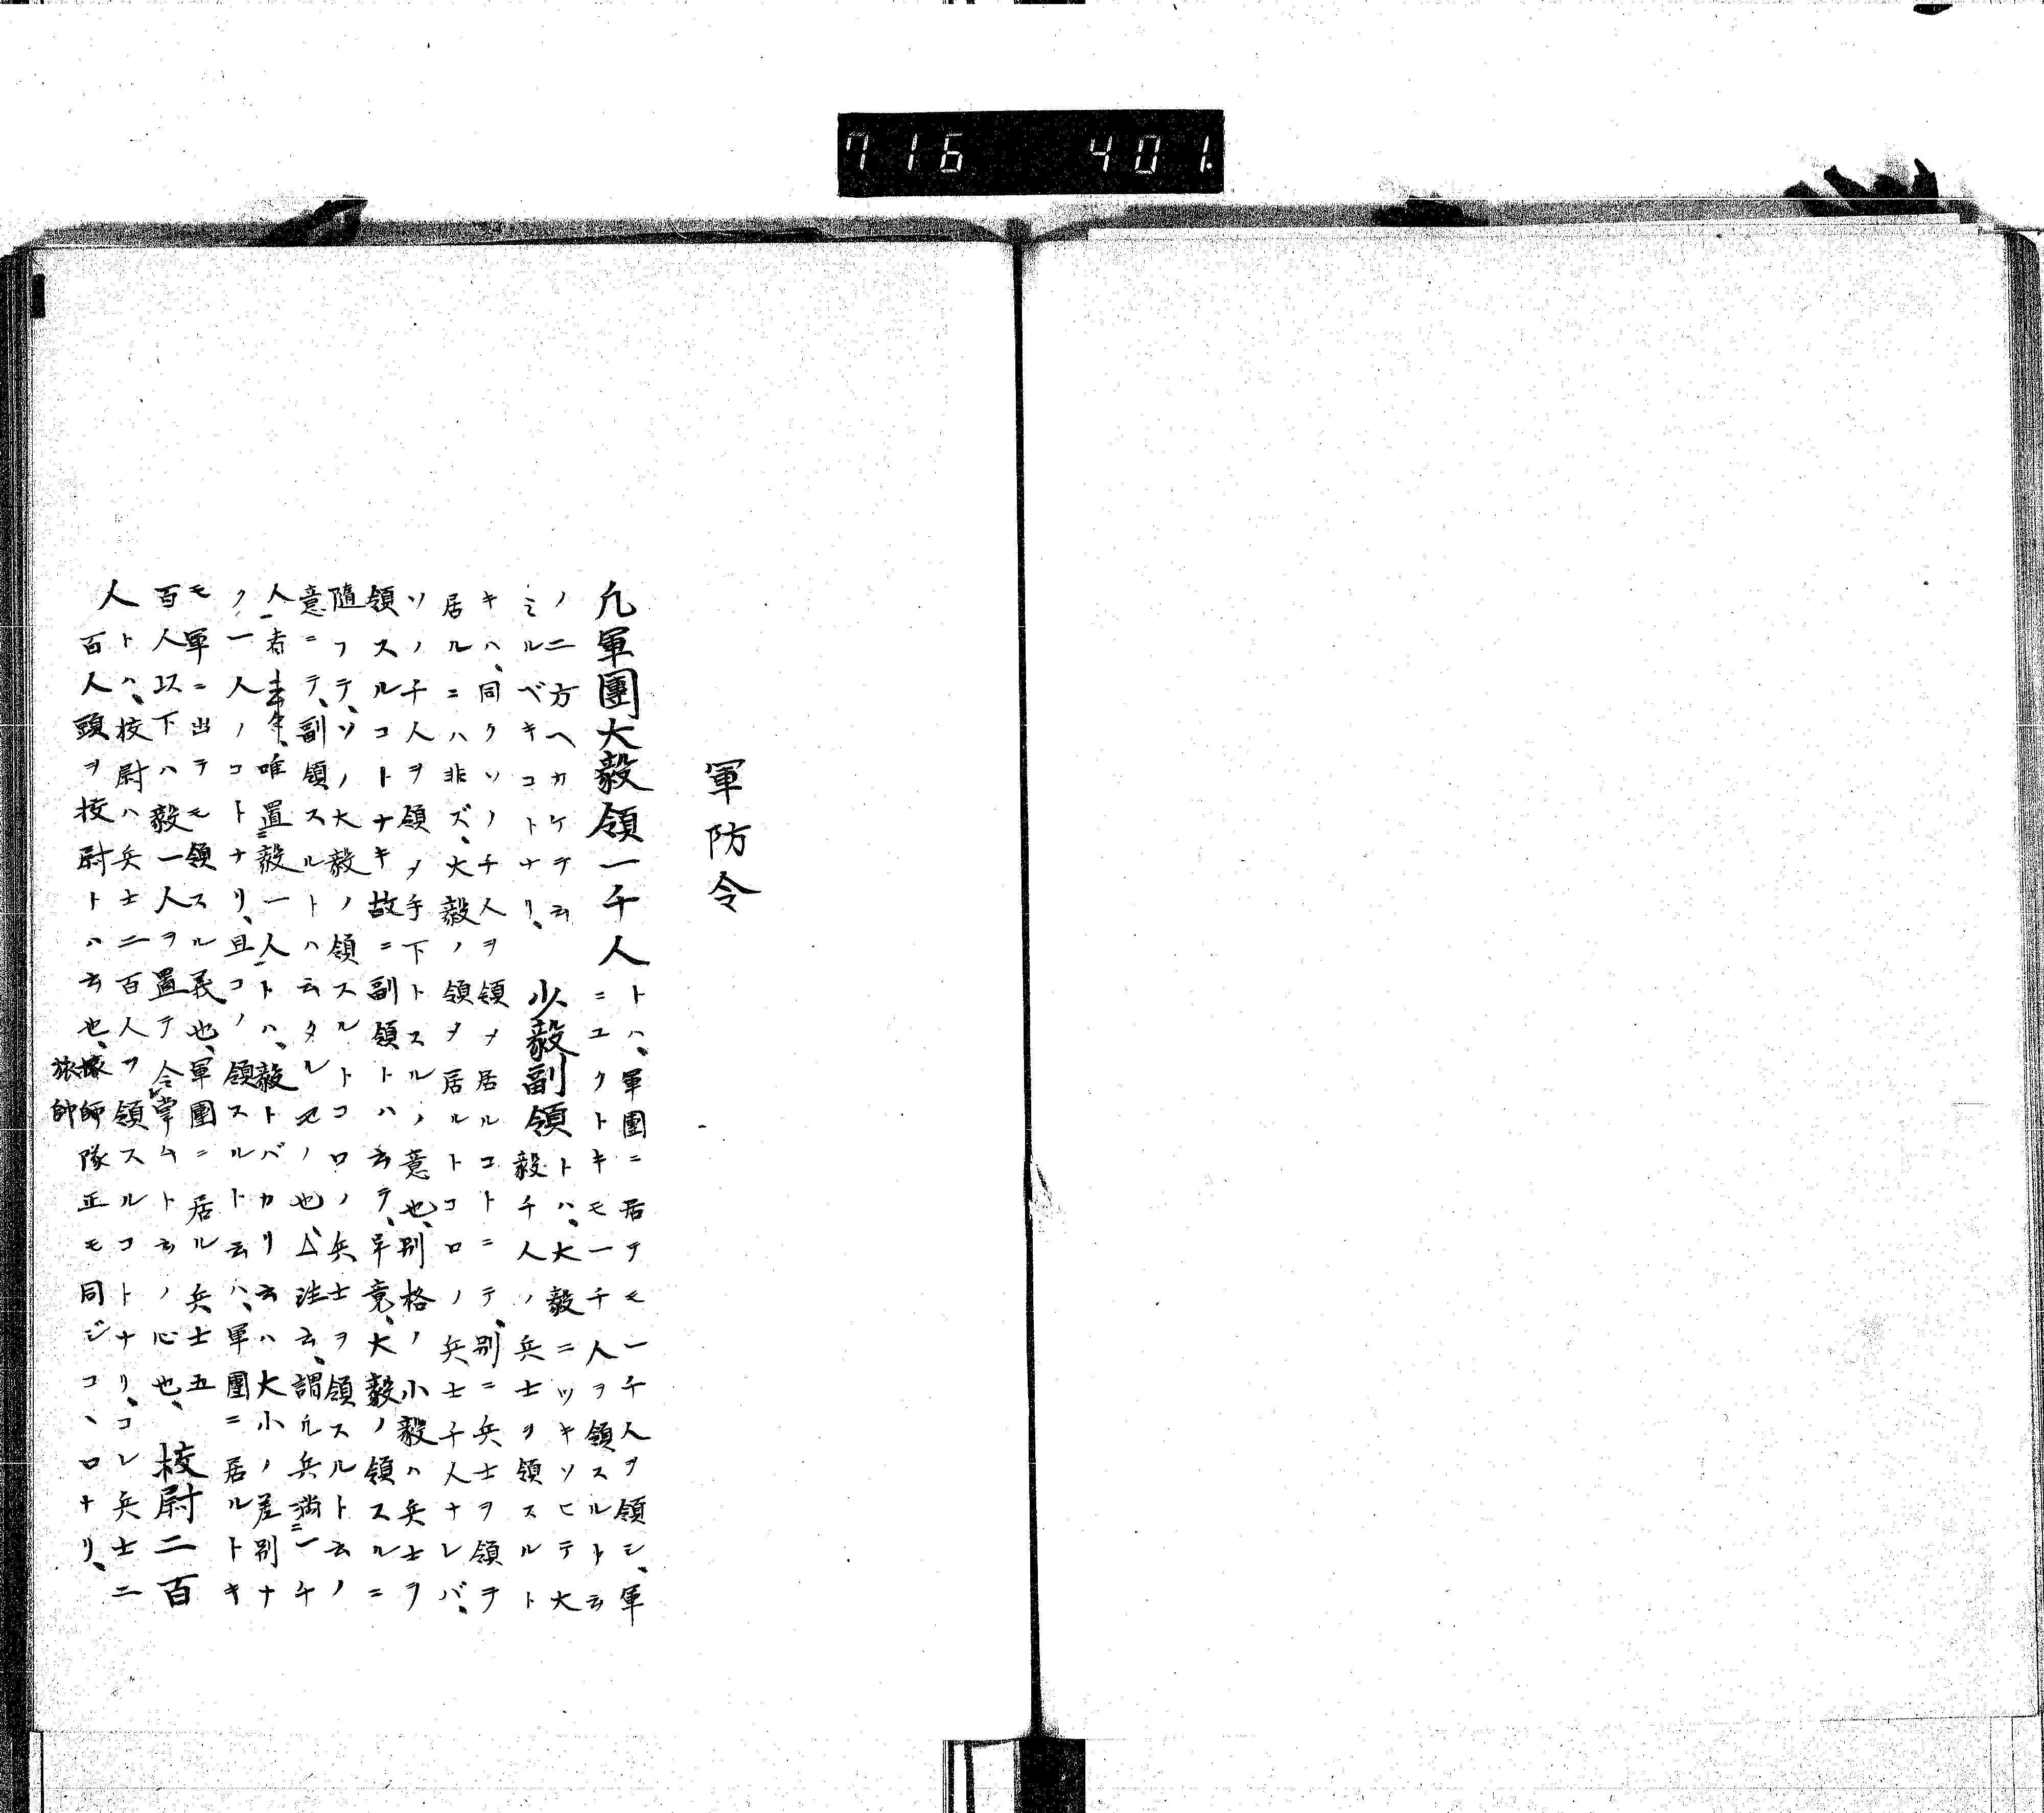 716 401
軍防令
凡軍團大毅領一千人トハ、軍團ニ居テモ一千人ヲ領シ、軍
ニユクトキモ一千人ヲ領スルト云
ノ二方ヘカケテ云
ミルベキコトナリ、
少毅副領トハ、大毅ニツキソヒテ大
毅千人ノ兵士ヲ領スルト
キハ、同クソノ千人ヲ領〆居ルコトニテ、別ニ兵士ヲ領ヲ
居ルニハ非ズ、大毅ノ領〆居ルトコロノ兵士千人ナレバ、
ソノ千人ヲ領〆手下トスルノ意也、別格ノ小毅ハ兵士ヲ
領スルコトナキ故ニ副領トハ云テ、畢竟、大毅ノ領スルニ
隨フテ、ソノ大毅ノ領スルトコロノ兵士ヲ領スルト云ノ
意ニテ、副領スルトハ云タルモノ也、△注云、謂凡兵満一千
人者云々、唯置毅一人トハ、毅トバカリ云ハ大小ノ差別ナ
ク、一人ノコトナリ、且コノ領スルト云ハ、軍團ニ居ルトキ
モ軍ニ出テモ領スル義也、軍團ニ居ル兵士五
百人以下ハ毅一人ヲ置テ令掌ムト云ノ心也、
校尉二百
人トハ、校尉ハ兵士二百人ヲ領スルコトナリ、コレ兵士二
百人頭ヲ校尉トハ云也、隊正モ同ジコヽロナリ、
旅帥